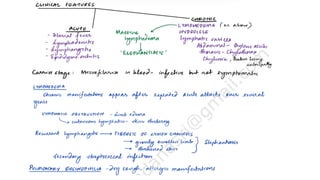 CLINICAL FEATURES
ACUTE
- Filarial fever
- Lymphadenitis
- Lymphangitis
- Epididymo orchitis
Massive
lymphedema
"ELEPHANTIASIS"
CHRONIC
LYMPHEDEMA (as above)
HYDROCELE
lymphatic varices
Abdominal -
Thoracic - Chylothorax
Chyluria -
Carrier stage - Microfilaria in blood - infective but not symptomatic
LYMPHEDEMA
Chronic manifestations appear after repeated acute attacks over several
years
LYMPHATIC OBSTRUCTION - Limb edema
→ cutaneous lymphatic - skin thickening
Recurrent lymphangitis → FIBROSIS OF LYMPH CHANNELS
→ greatly swollen limb
→ thickened skin
Elephantiasis
Secondary streptococcal infection
PULMONARY EOSINOPHILIA - Dry cough allergic manifestations
@gmail.